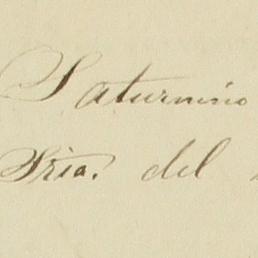 Saturnino
Sria. del